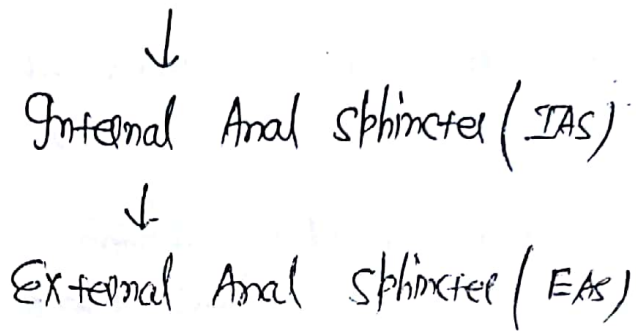 ↓
Internal Anal Sphincter (IAS)
↓
External Anal Sphincter (EAS)